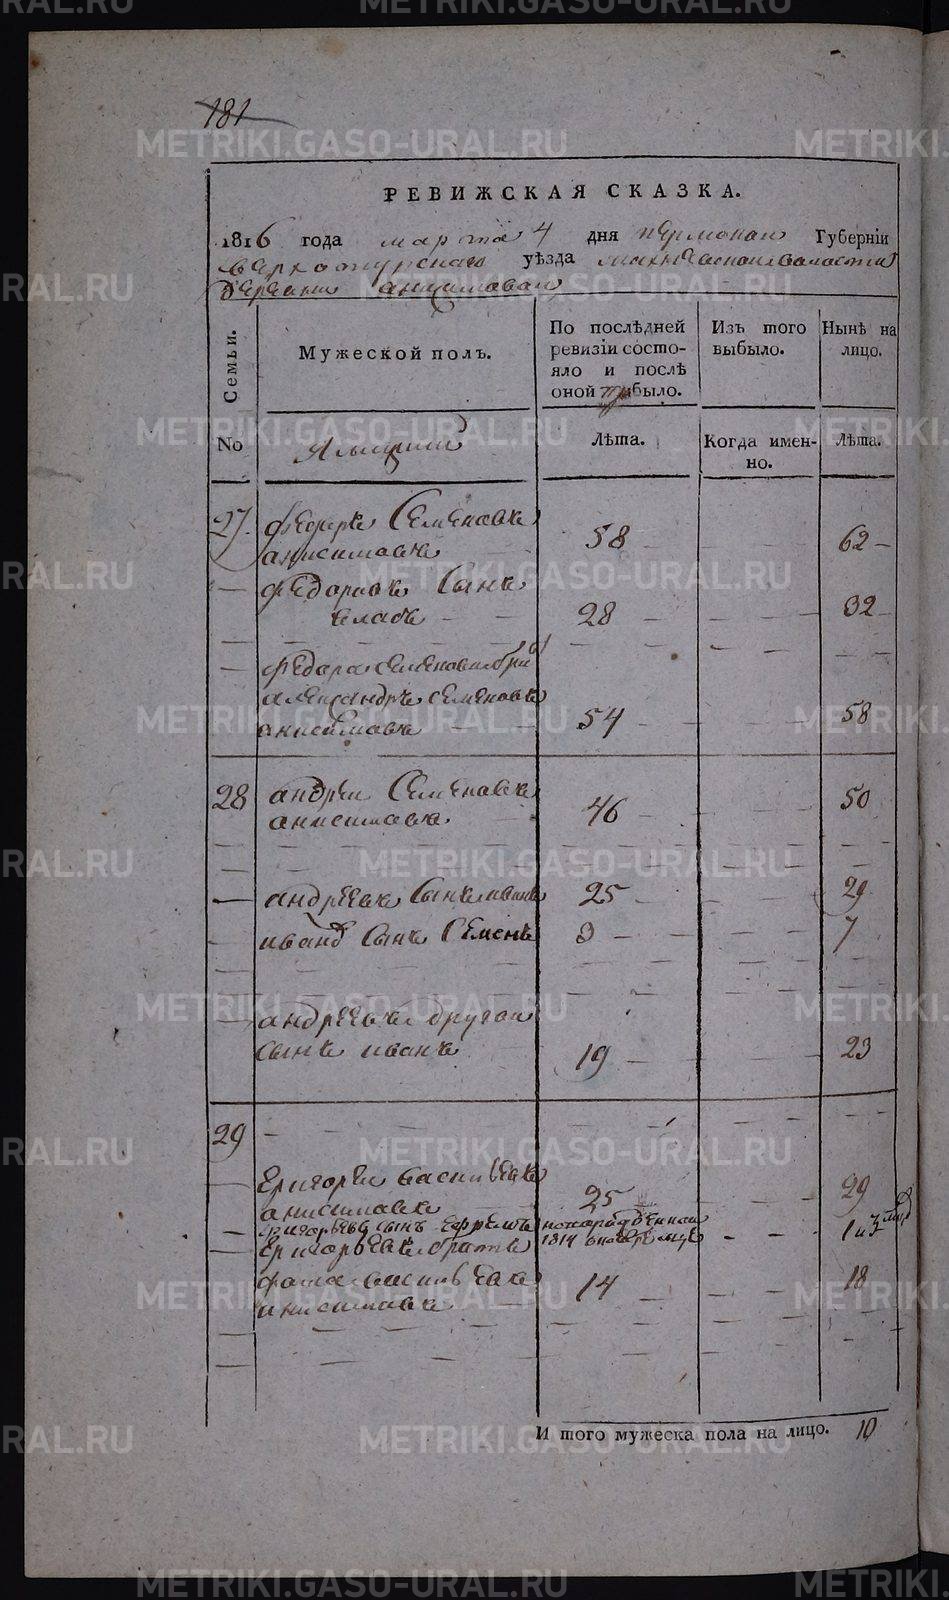 181
РЕВИЖСКАЯ СКАЗКА.
1816 года марта 4 дня пермской Губерніи
верхотурскаго уѣзда махневской волости
деревни анисимовой
Семьи.
No
Мужеской полъ.
Ямщики
По послѣдней ревизіи состо-
яло и послѣ
оной прибыло.
Лѣта.
Изъ того
выбыло.
Когда имен-
но.
Нынѣ на
лицо.
Лѣта.
27. федоръ Семеновъ
анисимовъ 58 62
федоровъ Сынъ
28 32
федора семенова
александръ семеновъ
анисимовъ 54 58
28 андрей Семеновъ
анисимовъ 46 50
андреевъ Сынъ иванъ 25 29
ивана Сынъ Семенъ 3 7
андреевъ другой
сынъ иванъ 19 23
29
григорей васильевъ
анисимовъ 25 29
григорьевъ сынъ ефремъ новорожденной 1 и 3
григорьевъ братъ 1814
фома васильевъ 14 18
анисимовъ
И того мужеска пола на лицо. 10
METRIKI.GASO-URAL.RU